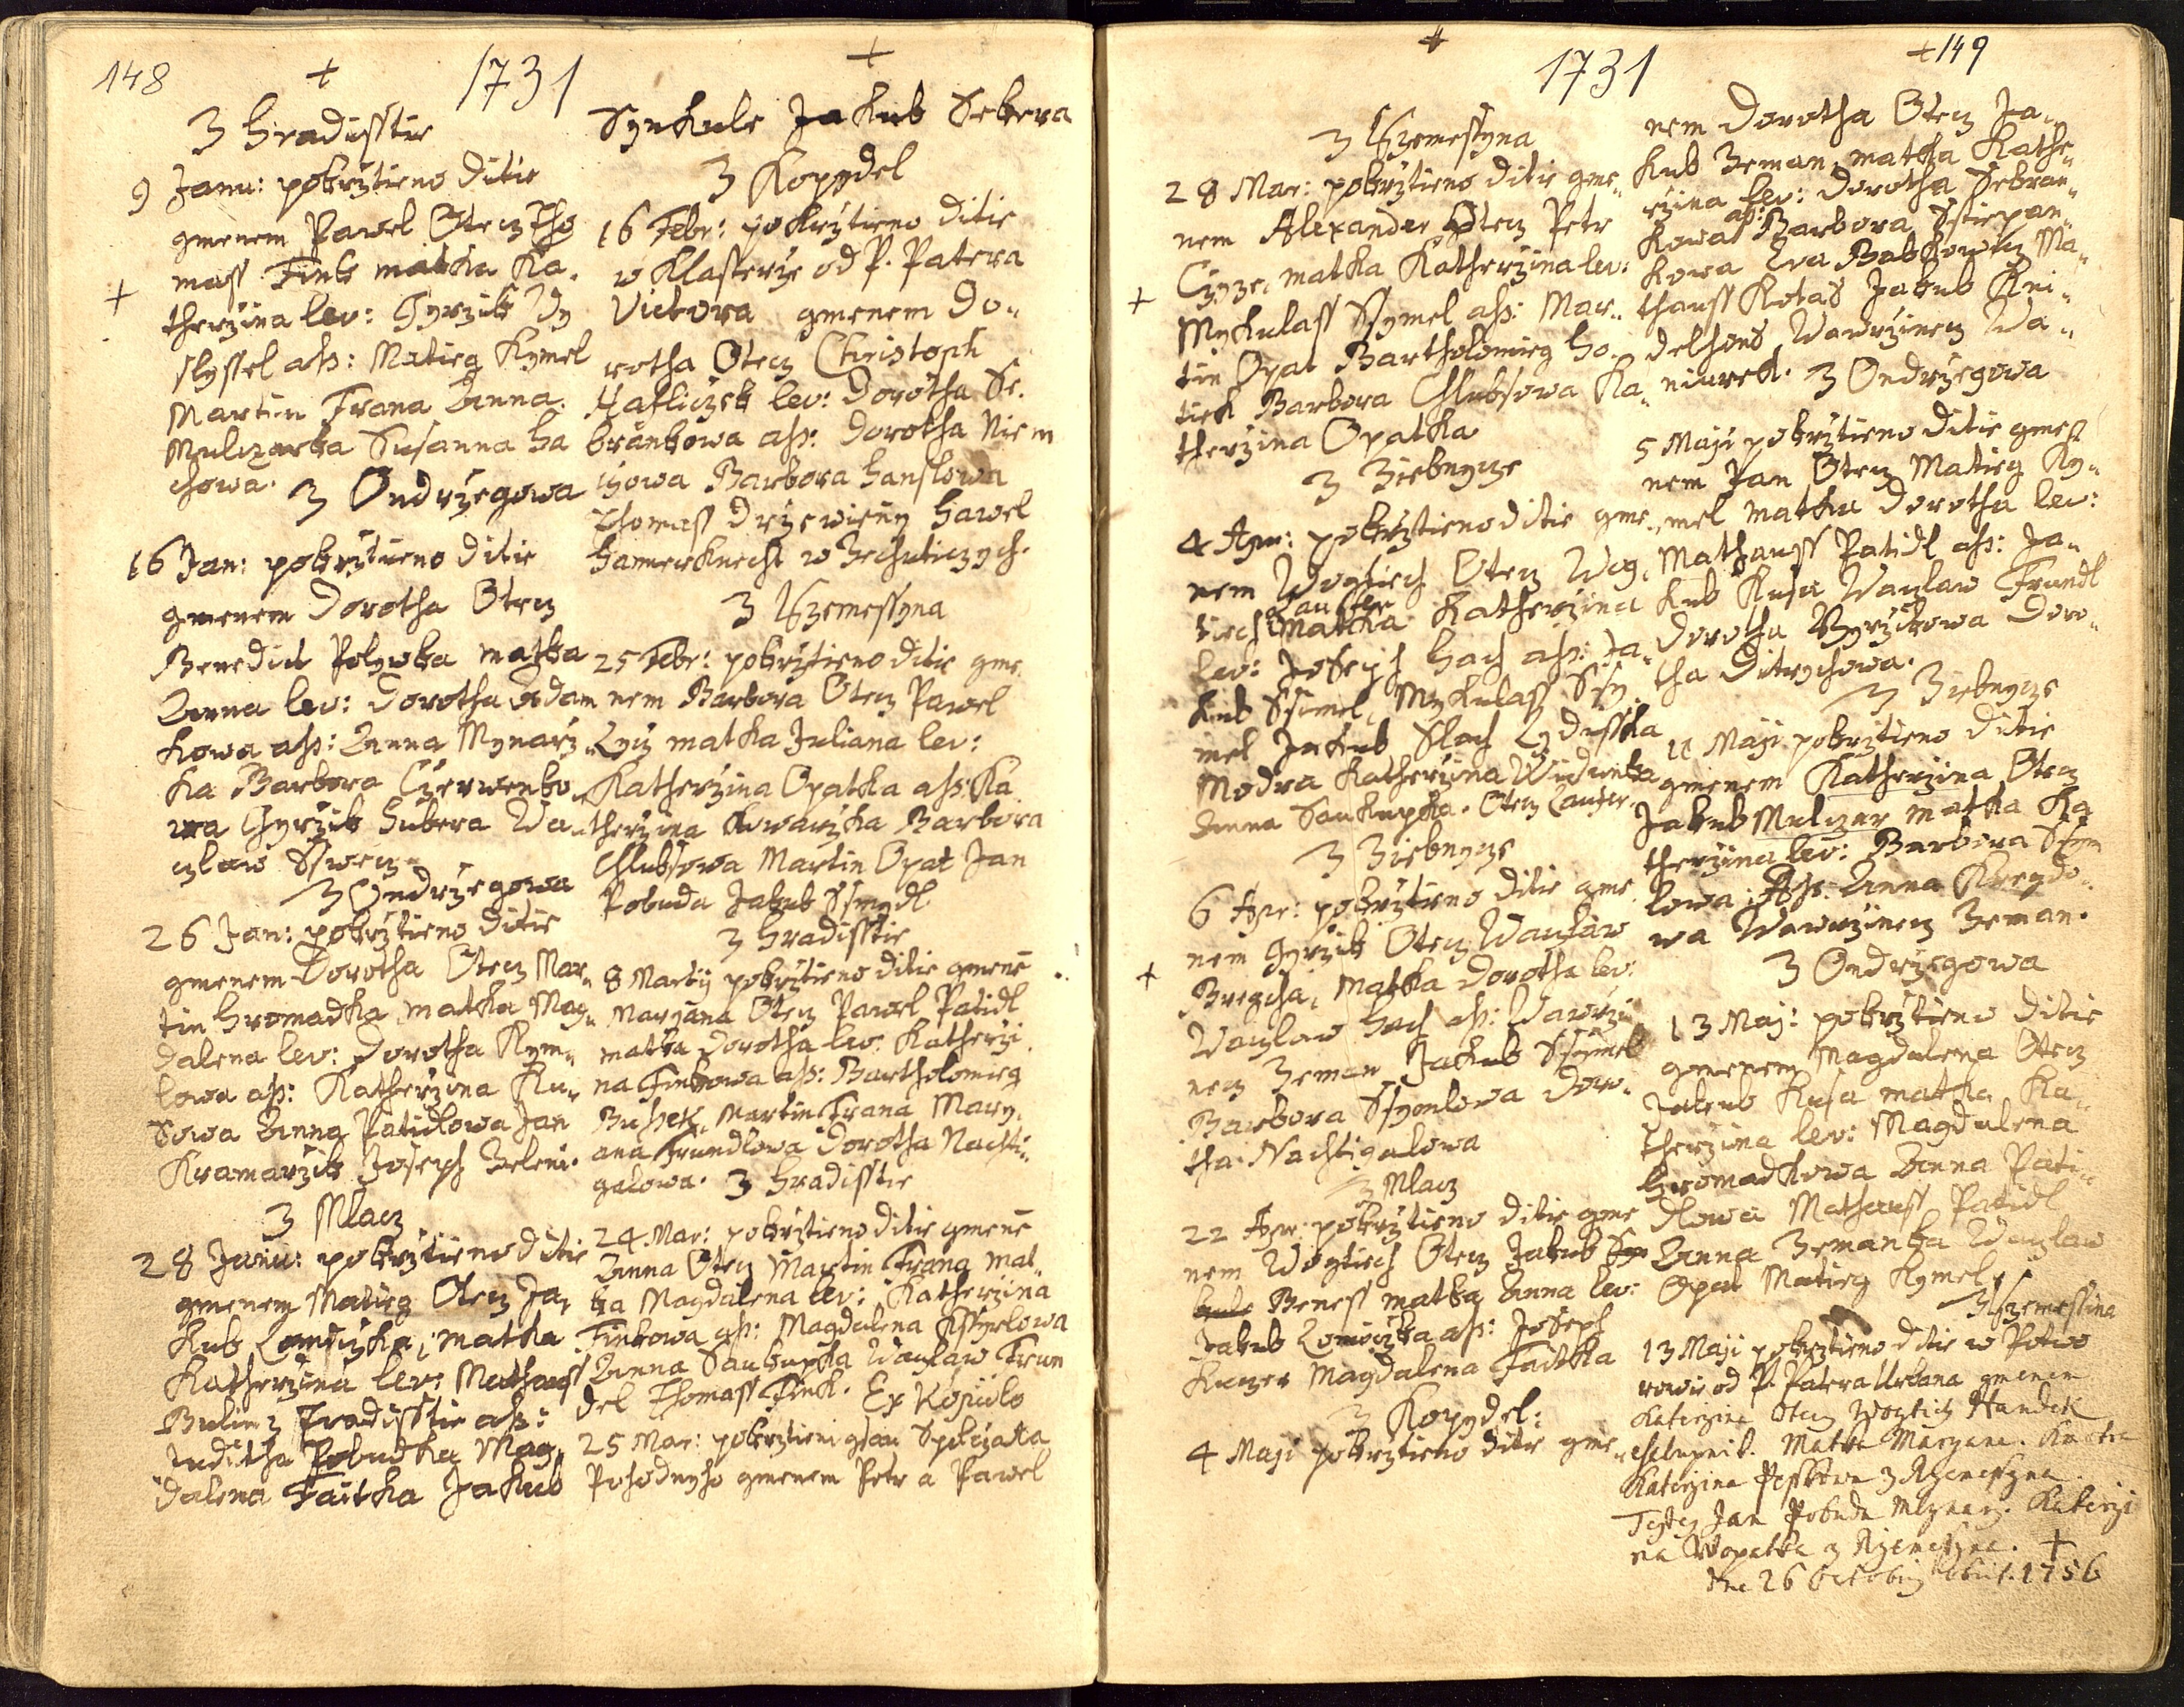 148
1731
Z Hradisstie
9 Janu: pokrztieno ditie
gmenem Pawel Otecz Tho
mass Fink matka Ka
therzina lev: Gyrzik Vy
slyssel ass: Matieg Kymel
Martin Frana Anna
Mulczarka Susanna Ha
chowa.
Z Ondrzegowa
16 Jan: pokrztieno ditie
gmenem Dorotha Otecz
Benedict Polywka matka
Anna lev: Dorotha Adam
kowa ass: Anna Mynarz
ka Barbora Czerwenko
wa Gyrzik Hubera Wa
czlaw Sswecz
Z Ondrzegowa
26 Jan: pokrztieno ditie
gmenem Dorotha Otecz Mar
tin Hromadka matka Mag
dalena lev: Dorotha Kym
lowa ass: Katherzina Ku
sowa Anna Patidlowa Jan
Kramarzik Joseph Zeleni.
Z Mlacz
28 Janu: pokrztieno ditie
gmenem Matieg Otecz Ja
kub Lomiczka, matka
Katherzina lev: Mathauss
Bulin z Hradisstie ass:
Juditha Pobudka Mag
dalena Faitka Jakub
Synkule Jakub Sebera
Z Kopydel
16 Febr: pokrztieno ditie
w Klasterze od P. Patera
Victora gmenem Do
rotha Otecz Christoph
Hafliczek lev: Dorotha Se
brankowa ass: Dorotha Niem
czowa Barbora Hanslowa
Thomass Drzewieny Hawel
Hamerknecht w Zechuticzych.
Z Rzemessyna
25 Febr: pokrztieno ditie gme
nem Barbora Otecz Pawel
Lycz matka Juliana lev:
Katherzina Opatka ass: Ka
therzina Kowarzka Barbora
Chlubsowa Martin Opat Jan
Pobuda Jakub Ssmydl
Z Hradisstie
8 Martij pokrztieno ditie gmenē
Maryana Otecz Pawel Patidl
matka Dorotha lev: Katherzi
na Finkowa ass: Bartholomieg
Buchek, Martin Frana Mary
ana Frundlowa Dorotha Nachti
galowa. Z Hradisstie
24 Mar: pokrztieno ditie gmenē
Anna Otecz Martin Frana mat
ka Magdalena lev: Katherzina
Finkowa ass: Magdalena
Anna Saukupka Waczlaw Frun
del Thomass Fink. Ex Kopidlo
25 Mar: pokrztieni gsau
Pohodnyho gmenem Petr a Pawel
149
1731
Z Rzemessyna
28 Mar: pokrztieno ditie gme
nem Alexander Otecz Petr
Czyze, matka Katherzina lev:
Mykulass Ssymel ass: Mar
tin Opat Bartholomieg Ho
tiek Barbora Chlubsowa Ka
therzina Opatka
Z Ziebnycze
4 Apr: pokrztieno ditie gme
nem Wogtiech Otecz Wog
tiech Matka Katherzina
lev: Joseph Hach ass: Ja
kub Ssimel, Mykulass Ssy
mel Jakub Slach Lydusska
Modra Katherzina
Anna Saukupka. Otecz
Z Ziebnycze
6 Apr: pokrztieno ditie gme
nem Gyrzik Otecz Waczlaw
Bregcha, Matka Dorotha lev:
Waczlaw Hach ass: Wawrzi
necz Zeman Jakub Ssymel
Barbora Ssymlowa Doro
tha Nachtigalowa
Z Mlacz
22 Apr: pokrztieno ditie gme
nem Wogtiech Otecz Jakub
Beness matka Anna lev:
Jakub Lomiczka ass: Joseph
Kuczer Magdalena Faitka
Z Kopydel:
4 Maji pokrztieno ditie gme
nem Dorotha Otecz Ja
kub Zeman, matka Kathe
rzina lev: Dorotha Sebran
kowa ass: Barbora Sstiepan
kowa Eva Ma
thauss Kotas Jakub Kni
Wawrzinecz Wa
niurek. Z Ondrzegowa
5 Maji pokrztieno ditie gme
nem Jan Otecz Matieg Ky
mel matka Dorotha lev:
Mathauss Patidl ass: Ja
kub Kusa Waczlaw Frundl
Dorotha Doro
tha Ditrychowa.
Z Ziebnycze
11 Maji pokrztieno ditie
gmenem Katherzina Otecz
Jakub Mulczar matka Ka
therzina lev: Barbora Ssym
lowa, Ass: Anna
wa Wawrzinecz Zeman.
Z Ondrzegowa
13 Maj: pokrztieno ditie
gmenem Magdalena Otecz
Jakub Kusa matka Ka
therzina lev: Magdalena
Hromadkowa Anna Pati
dlowa Mathauss Patidl
Anna Zemanka Waczlaw
Opat Matieg Kymel
Z Rzemessina
13 Maji pokrztieno ditie w
od P. Patera Urbana gmenem
Katerzina Otecz Wogtiech Handek
chalupnik. Matka Maryana. Kmotra
Katerzina z Rzemessyna.
Testes Jan Pobuda Mlynarz. Katerzi
na Wopatka z Rzemessyna. +
Die 26 Octobris obiit 1756